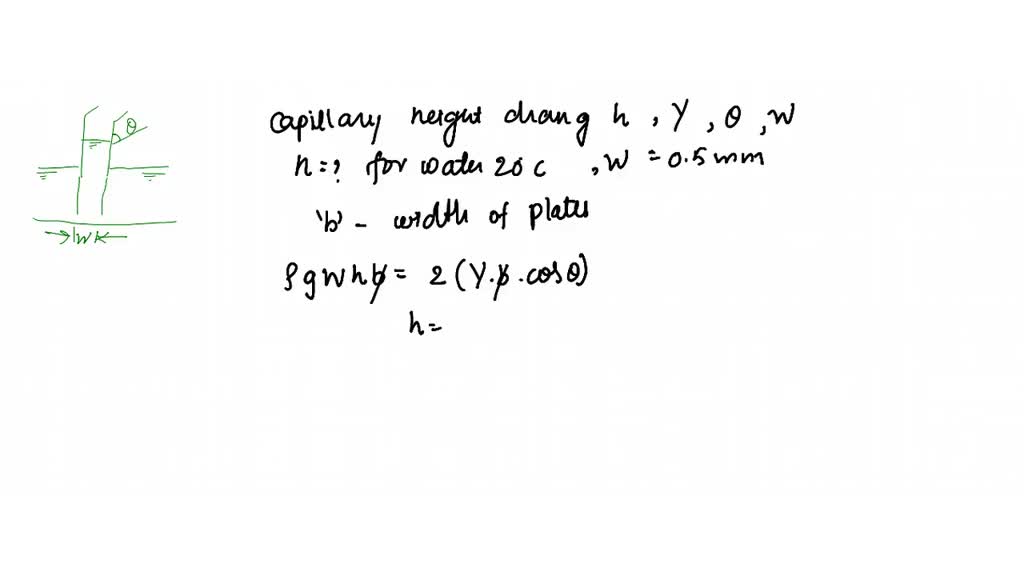 θ
W
capillary height chang h , Y , θ , w
h = ? for water 20 c , W = 0.5 mm
'b' - width of plates
ρ g w h b = 2 (Y . b . cos θ)
h =